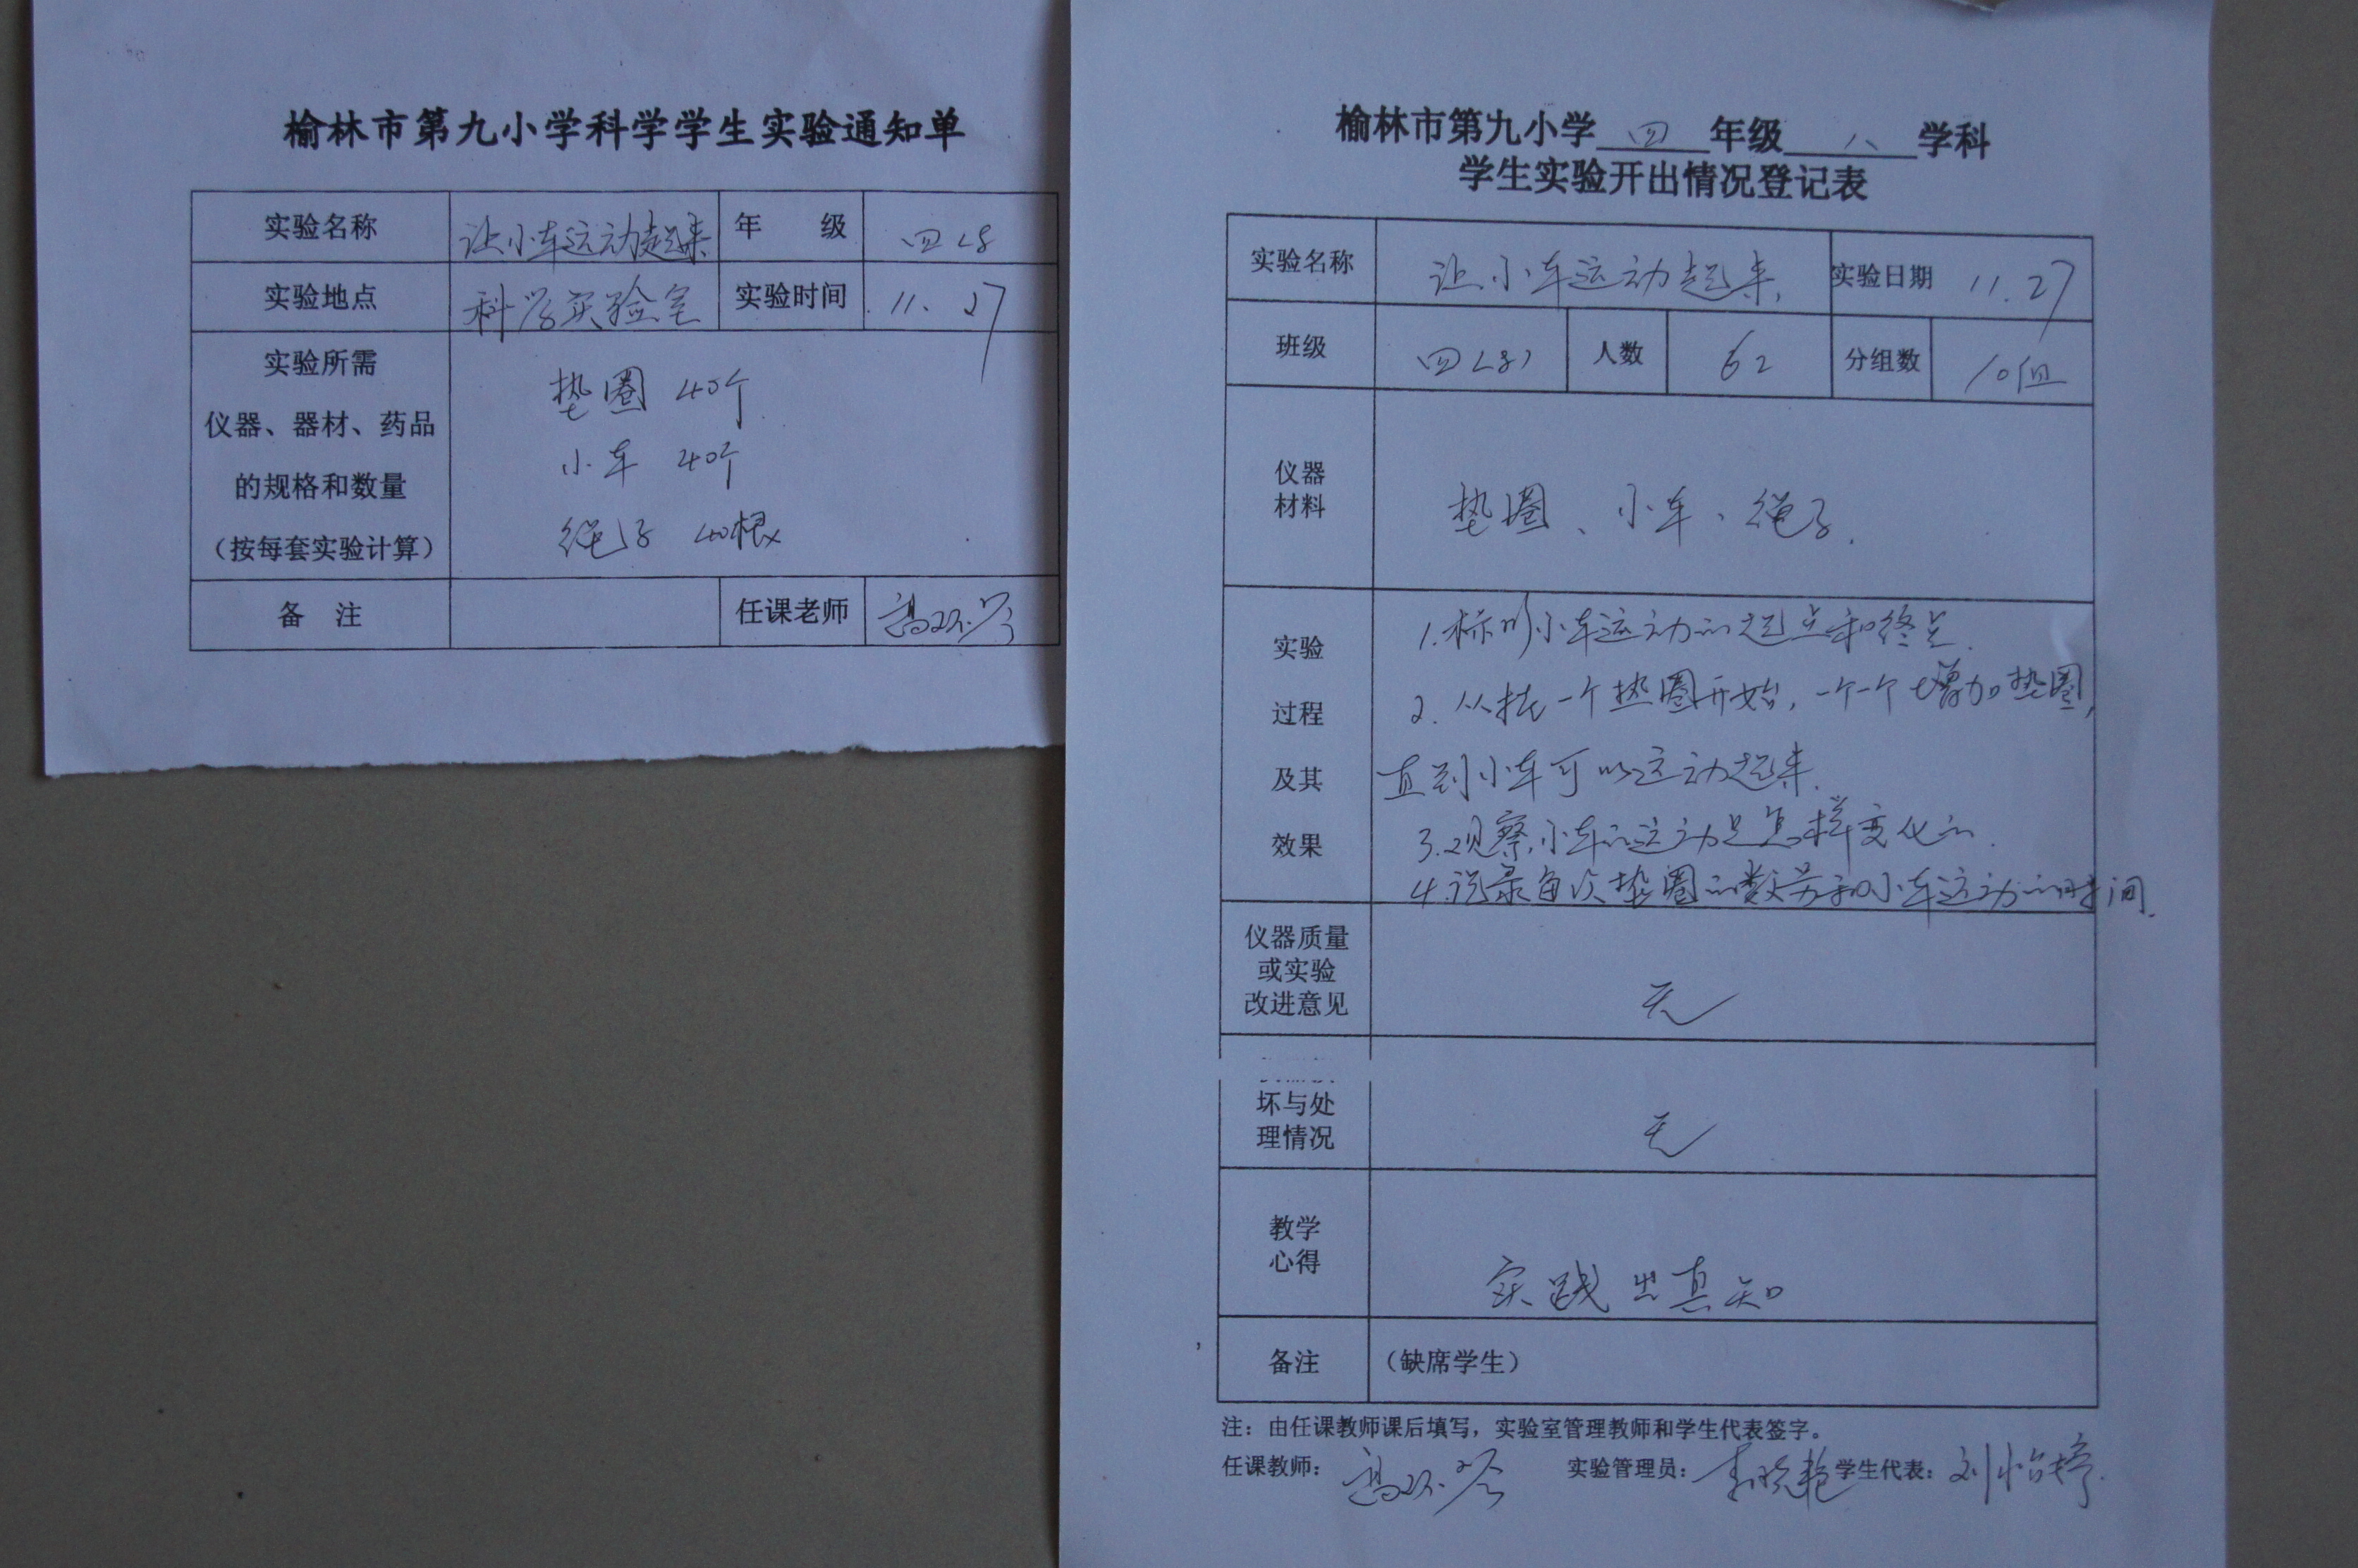 榆林市第九小学科学学生实验通知单
实验名称 让小车运动起来 年 级 四<8
实验地点 科学实验室 实验时间 11.27
实验所需
仪器、器材、药品
的规格和数量
（按每套实验计算）
垫圈 40个
小车 40个
绳子 40根
备 注 任课老师
榆林市第九小学 四 年级 八 学科
学生实验开出情况登记表
实验名称 让小车运动起来. 实验日期 11.27
班级 四<8> 人数 62 分组数 10组
仪器
材料
垫圈、小车、绳子.
实验
过程
及其
效果
1.标明小车运动的起点和终点.
2.从挂一个垫圈开始，一个一个增加垫圈，
直到小车可以运动起来.
3.观察小车的运动是怎样变化的.
4.记录每次垫圈的数量和小车运动的时间.
仪器质量
或实验
改进意见
无
坏与处
理情况
无
教学
心得
实践出真知
备注 （缺席学生）
注：由任课教师课后填写，实验室管理教师和学生代表签字。
任课教师： 实验管理员：李晓艳 学生代表：刘怡婷